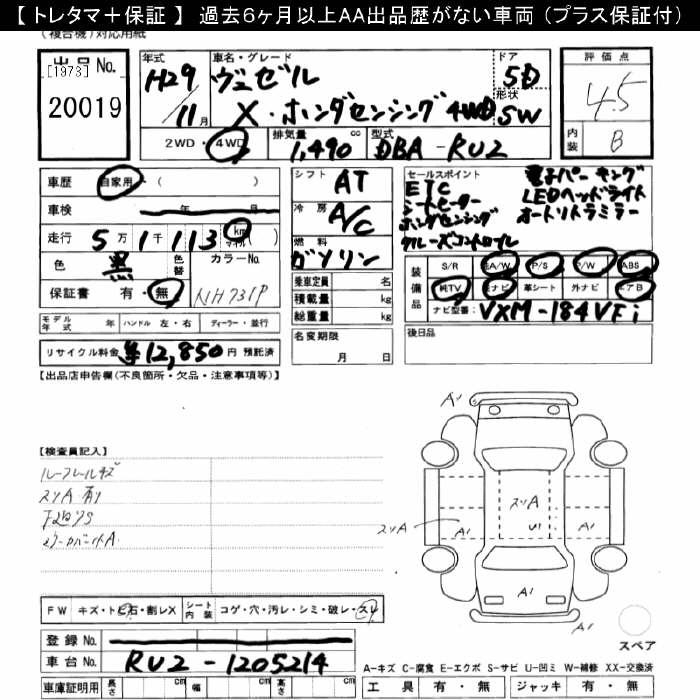 【 トレタマ＋保証 】 過去６ヶ月以上ＡＡ出品歴がない車両（プラス保証付）
(複合機)対応用紙
出品 No.
[1973]
20019
年式 H29 / 11 月
車名・グレード ヴェゼル
X・ホンダセンシング 4WD
ドア 5D
形状 SW
評価点
4.5
内装 B
2WD ・ 4WD
排気量 1,490 cc
型式 DBA-RU2
車歴 自家用・( )
車検 年 月
走行 5万1千113 km マイル ( )
色 黒 色替 カラーNo.
保証書 有・無 NH731P
シフト AT
冷房 A/C
燃料 ガソリン
乗車定員 名
積載量 kg
総重量 kg
名変期限
月 日
セールスポイント
ETC
シートヒーター
ホンダセンシング
クルーズコントロール
電子パーキング
LEDヘッドライト
オートリトラミラー
装備品
S/R A/W P/S P/W ABS
純TV ナビ 革シート 外ナビ エアB
ナビ型番: VXM-184VFi
後日品
モデル年式 年 ハンドル 左・右 ディーラー・並行
リサイクル料金 ¥12,850 円 預託済
【出品店申告欄(不良箇所・欠品・注意事項等)】
【検査員記入】
ルーフレールキズ
スリA 有り
A1
A1
スリA
スリA
A1
U1
A1
A1
A1
スペア
FW キズ・トビ石・割レX シート内装 コゲ・穴・汚レ・シミ・破レ・スレ
登録 No.
車台 No. RU2-1205214
車庫証明用 長さ cm 幅 cm 高さ cm
A-キズ C-腐食 E-エクボ S-サビ U-凹ミ W-補修 XX-交換済
工具 有・無 ジャッキ 有・無